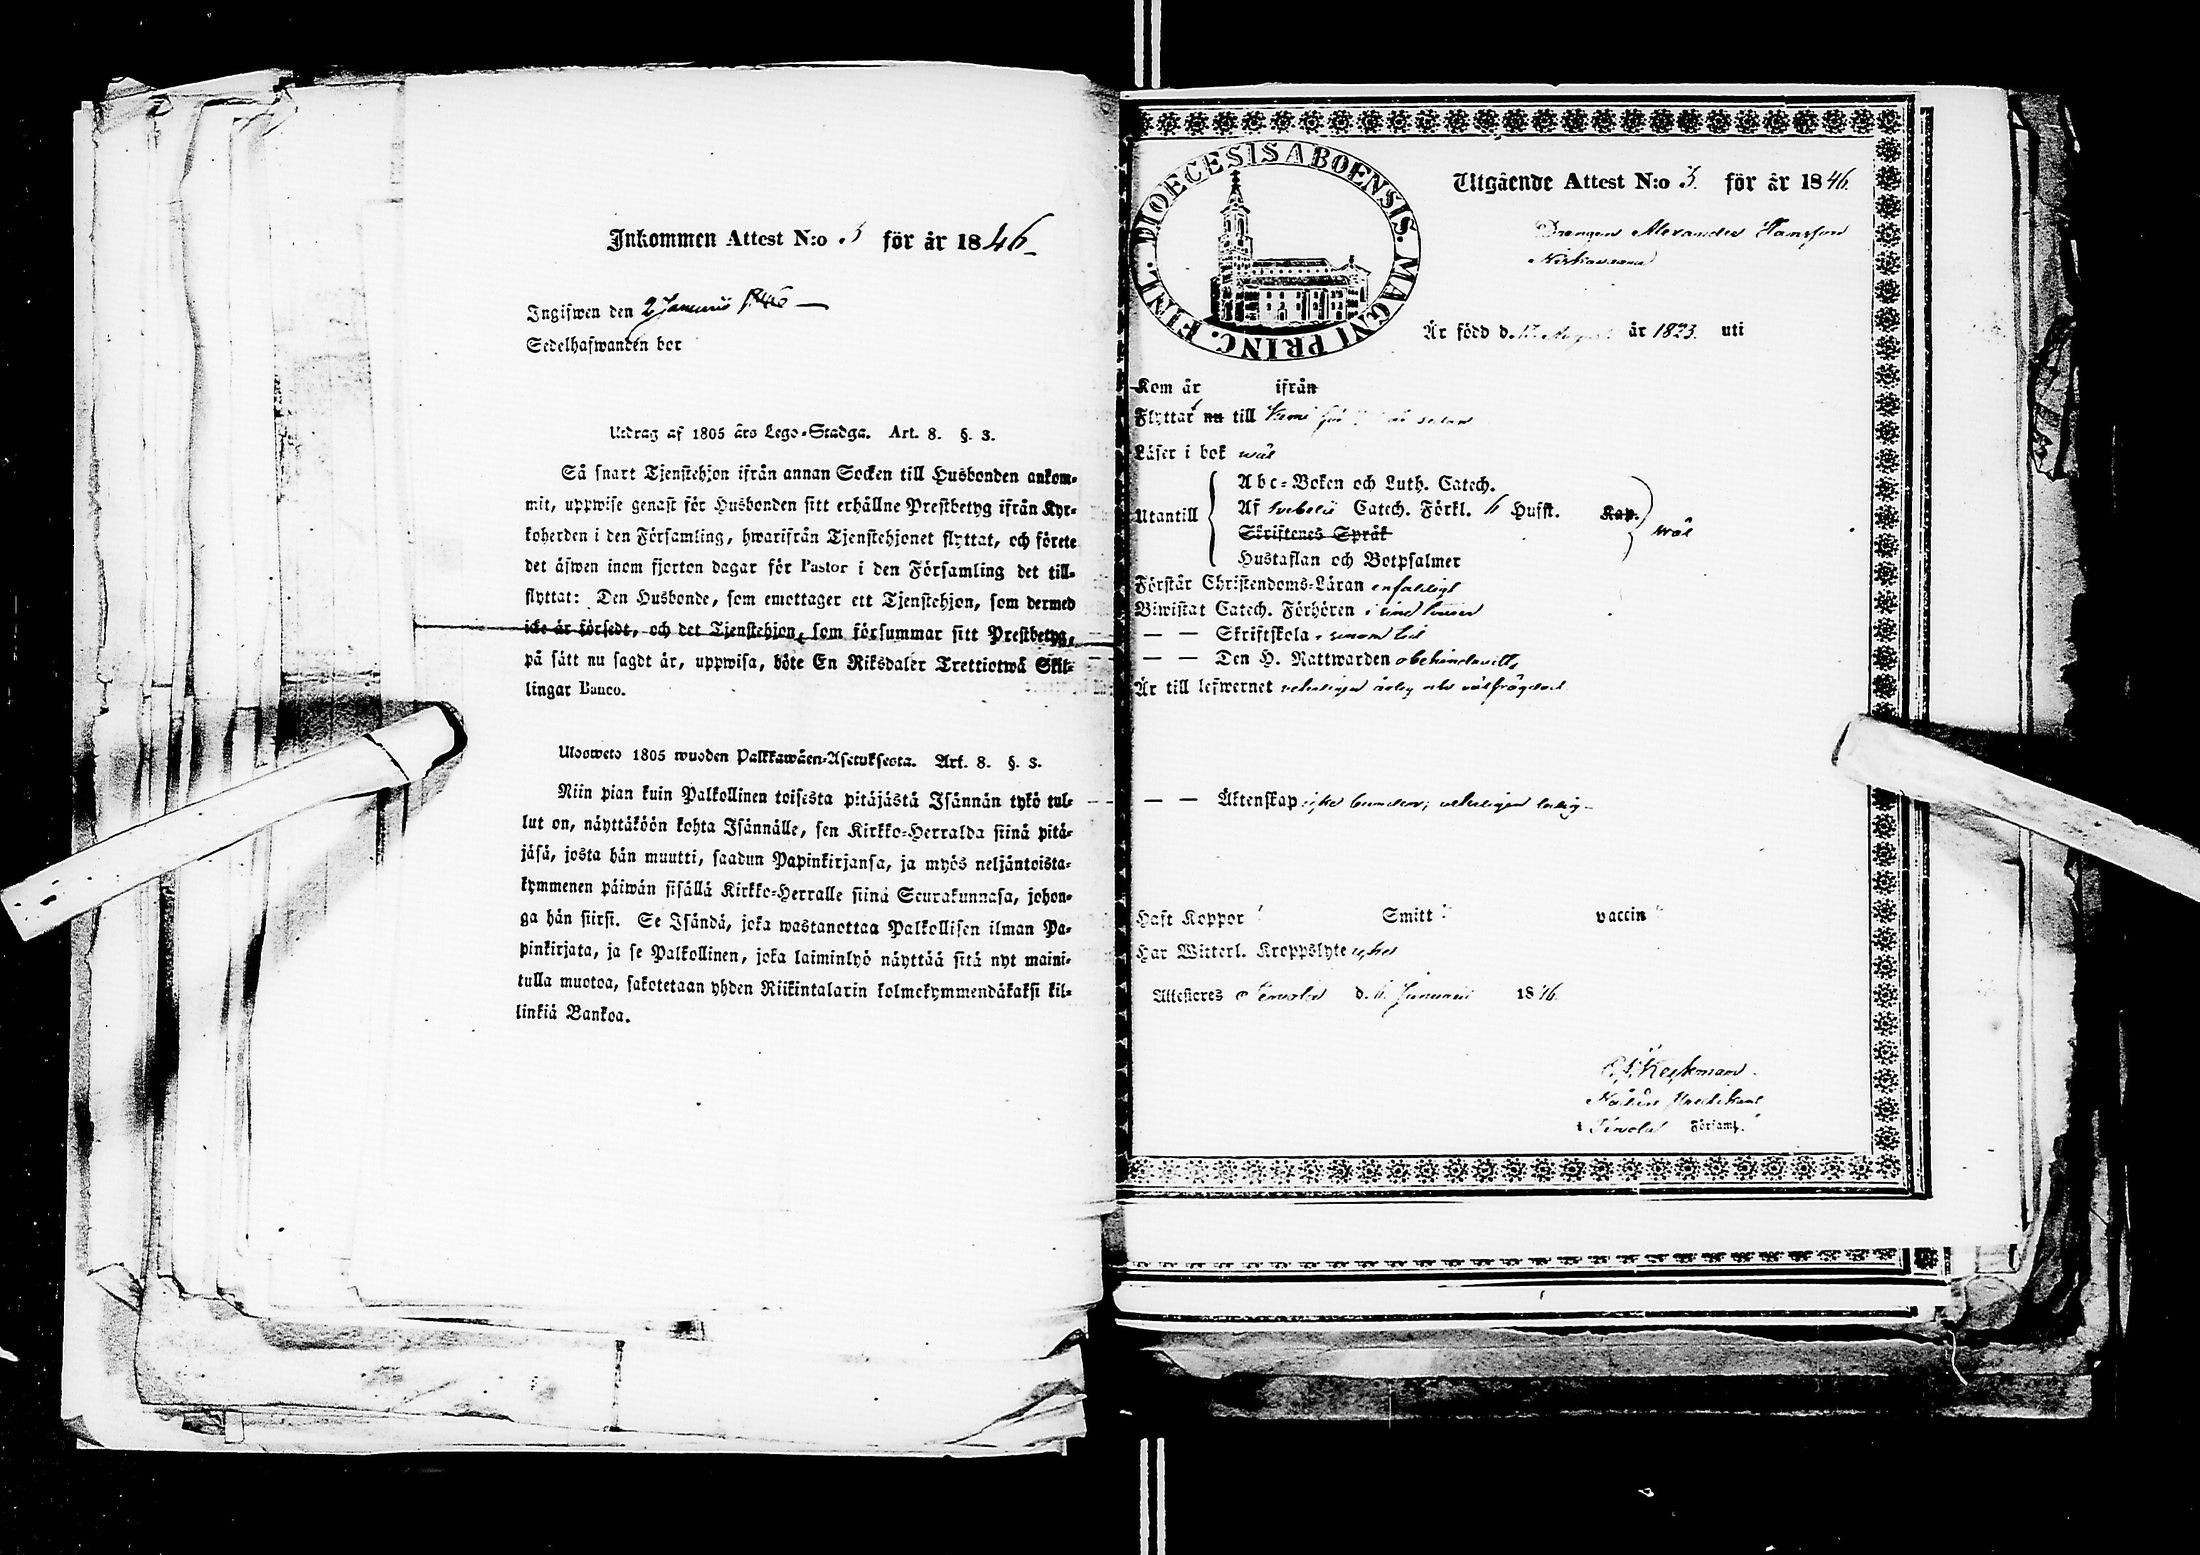 Inkommen Attest N:o 3 för år 1846
Ingifwen den 2 Januarii 1846
Sedelhafwanden bor
Utdrag af 1805 års Lego-Stadga. Art. 8. §. 3.
Så snart Tjenstehjon ifrån annan Socken till Husbonden ankom-
mit, uppwise genast för Husbonden sitt erhållne Prestbetyg ifrån Kyr-
koherden i den Församling, hwarifrån Tjenstehjonet flyttat, och förete
det äfwen inom fjorton dagar för Pastor i den Församling det till-
flyttat: Den Husbonde, som emottager ett Tjenstehjon, som dermed
icke är försedt, och det Tjenstehjon, som försummar sitt Prestbetyg,
på sätt nu sagdt är, uppwisa, böte En Riksdaler Trettiotwå Skil-
lingar Banco.
Ulosweto 1805 wuoden Palkkawäen-Asetuksesta. Art. 8. §. 3.
Niin pian kuin Palkollinen toisesta pitäjästä Isännän tykö tul-
lut on, näyttäköön kohta Isännälle, sen Kirkko-Herralda siinä pitä-
jäsä, josta hän muutti, saadun Papinkirjansa, ja myös neljäntoista-
kymmenen päiwän sisällä Kirkko-Herralle siinä Seurakunnasa, johon-
ga hän siirsi. Se Isändä, joka wastanottaa Palkollisen ilman Pa-
pinkirjata, ja se Palkollinen, joka laiminlyö näyttää sitä nyt maini-
tulla muotoa, sakotetaan yhden Riikintalarin kolmekymmendäkaksi kil-
linkiä Bankoa.
DIOECESIS ABOENSIS. MAGNI PRINC. FINL.
Utgående Attest N:o 3. för år 1846.
Drengen Alexander Hansson
Är född d. år 1823. uti
Kom år ifrån
Flyttar nu till Kemi sedan
Läser i bok wäl
Utantill
Abc-Boken och Luth. Catech.
Af Svebelii Catech. Förkl. 6 Hufst. Kap.
Skriftenes Språk
Hustaflan och Botpsalmer
wäl
Förstår Christendoms-Läran enfaldigt
Biwistat Catech. Förhören i sind
— — Skriftskola i
— — Den H. Nattwarden obehindradt
Är till lefwernet veterligen ärlig och välfrägdad
— — Äktenskap icke bunden, veterligen ledig
Haft Koppor Smitt vaccin
Har Witterl. Kroppslyte icke
Attesteres Tervola d. 6. Januarii 1846.
i Tervola Församl.